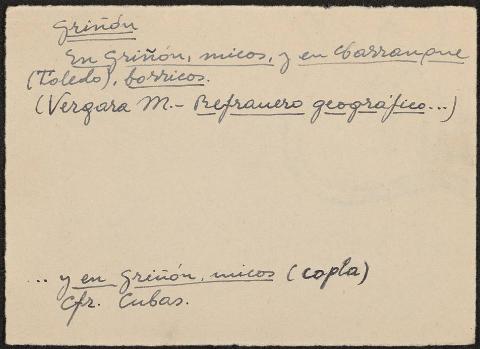 Griñón
En Griñón, micos, y en Cbarranque
(Toledo), borricos.
(Vergara M.- Refranero geográfico...)
... y en Griñón, micos (copla)
Cfr. Cubas.